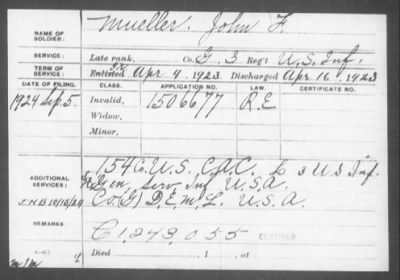 NAME OF SOLDIER: Mueller, John F.
SERVICE: Late rank, Co. G. 3 Reg't U.S. Inf.
TERM OF SERVICE: Enlisted Apr 4, 1923 Discharged Apr 16, 1923
DATE OF FILING. CLASS. APPLICATION NO. LAW. CERTIFICATE NO.
1924 Sep 5. Invalid, 1506677 R.E
Widow,
Minor,
154 Co. U.S. C.A.C. L 3 U.S. Inf.
ADDITIONAL SERVICES: Gen. Serv. Inf. U.S.A.
Co. G, D.E.M.L. U.S.A.
REMARKS: C 1,243,055
Died , 1 , at